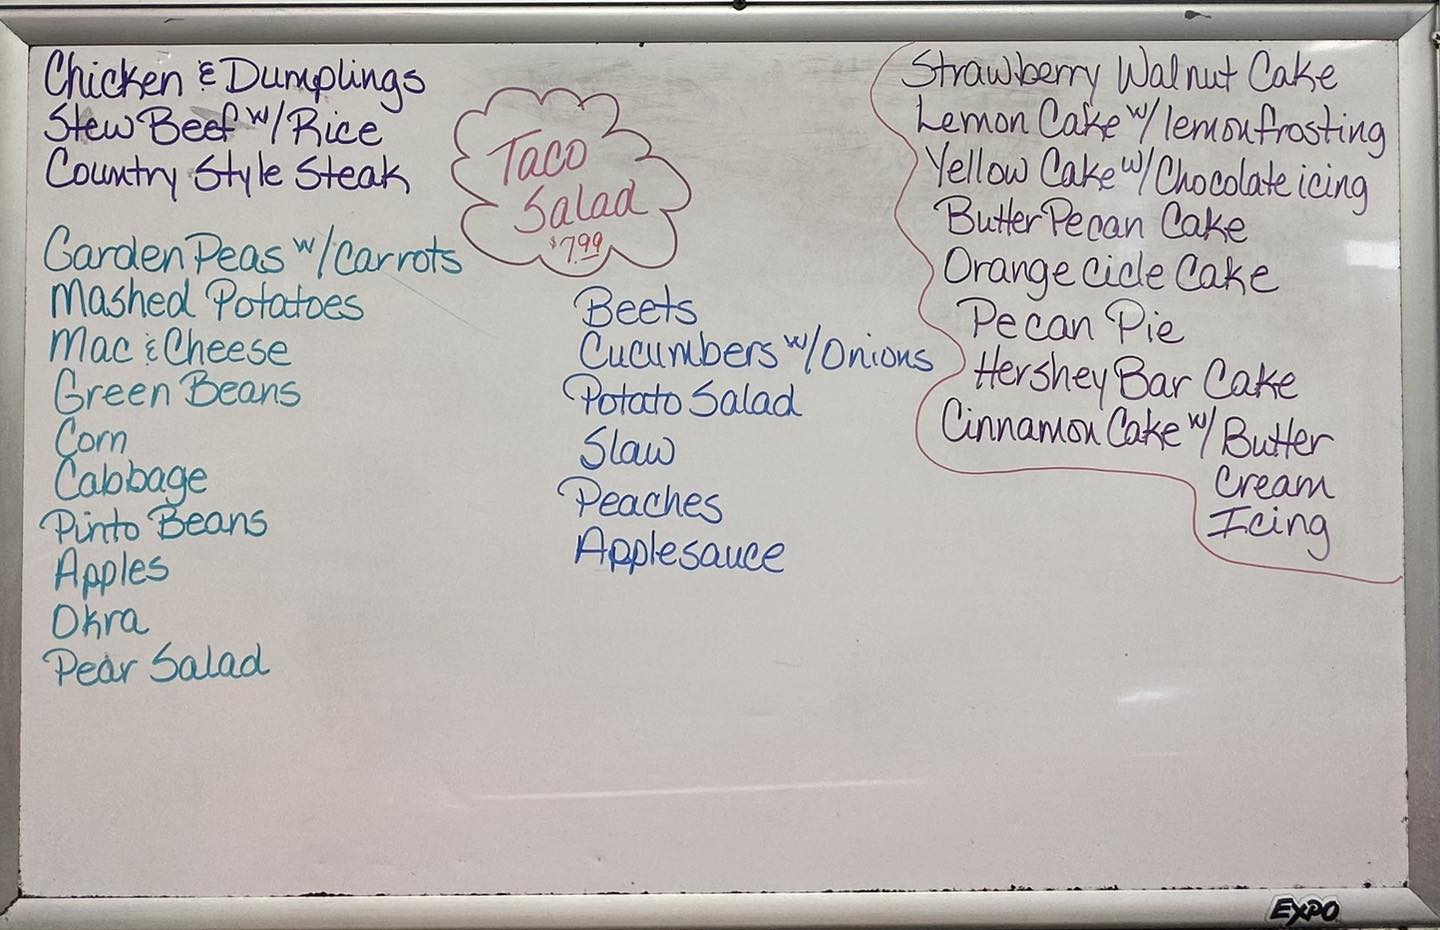 Chicken & Dumplings
Stew Beef w/ Rice
Country Style Steak
Garden Peas w/ Carrots
Mashed Potatoes
Mac & Cheese
Green Beans
Corn
Cabbage
Pinto Beans
Apples
Okra
Pear Salad
Taco
Salad
$7.99
Beets
Cucumbers w/ Onions
Potato Salad
Slaw
Peaches
Applesauce
Strawberry Walnut Cake
Lemon Cake w/ lemon frosting
Yellow Cake w/ Chocolate icing
Butter Pecan Cake
Orange cicle Cake
Pecan Pie
Hershey Bar Cake
Cinnamon Cake w/ Butter
Cream
Icing
EXPO